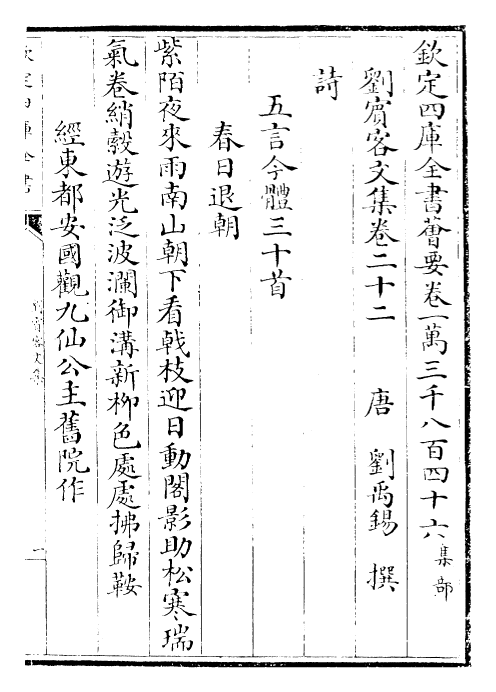 欽定四庫全書薈要卷一萬三千八百四十六集部
劉賓客文集卷二十二 唐 劉禹錫 撰
詩
五言今體三十首
春日退朝
紫陌夜來雨南山朝下看㦸枝迎日動閣影助松寒瑞
氣卷綃縠遊光泛波瀾御溝新柳色處處拂歸鞍
經東都安國觀九仙公主舊院作
欽定四庫全書
劉賓客文集
一